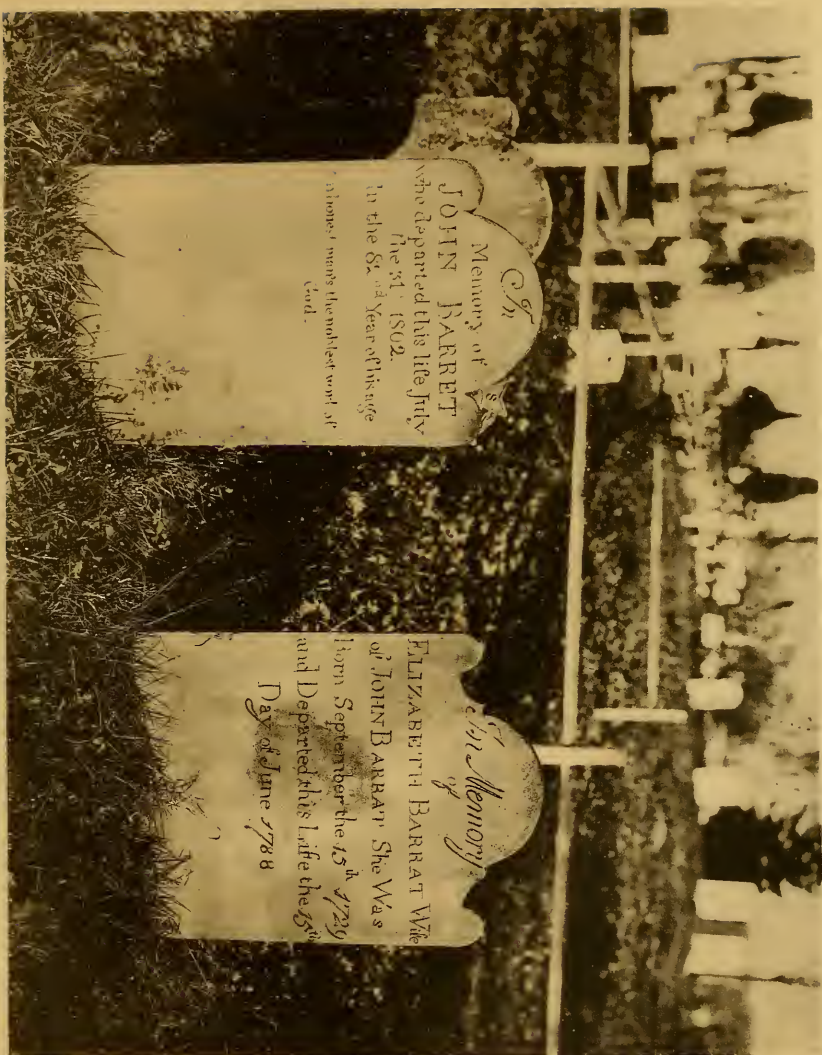 In
Memory of
JOHN BARRET
who departed this life July
the 31st 1802.
In the 82nd Year of his age
honest man's the noblest work of
God.
In Memory
of
ELIZABETH BARRAT Wife
of JOHN BARRAT She Was
Born September the 15th 1729
and Departed this Life the 15th
Day of June 1788